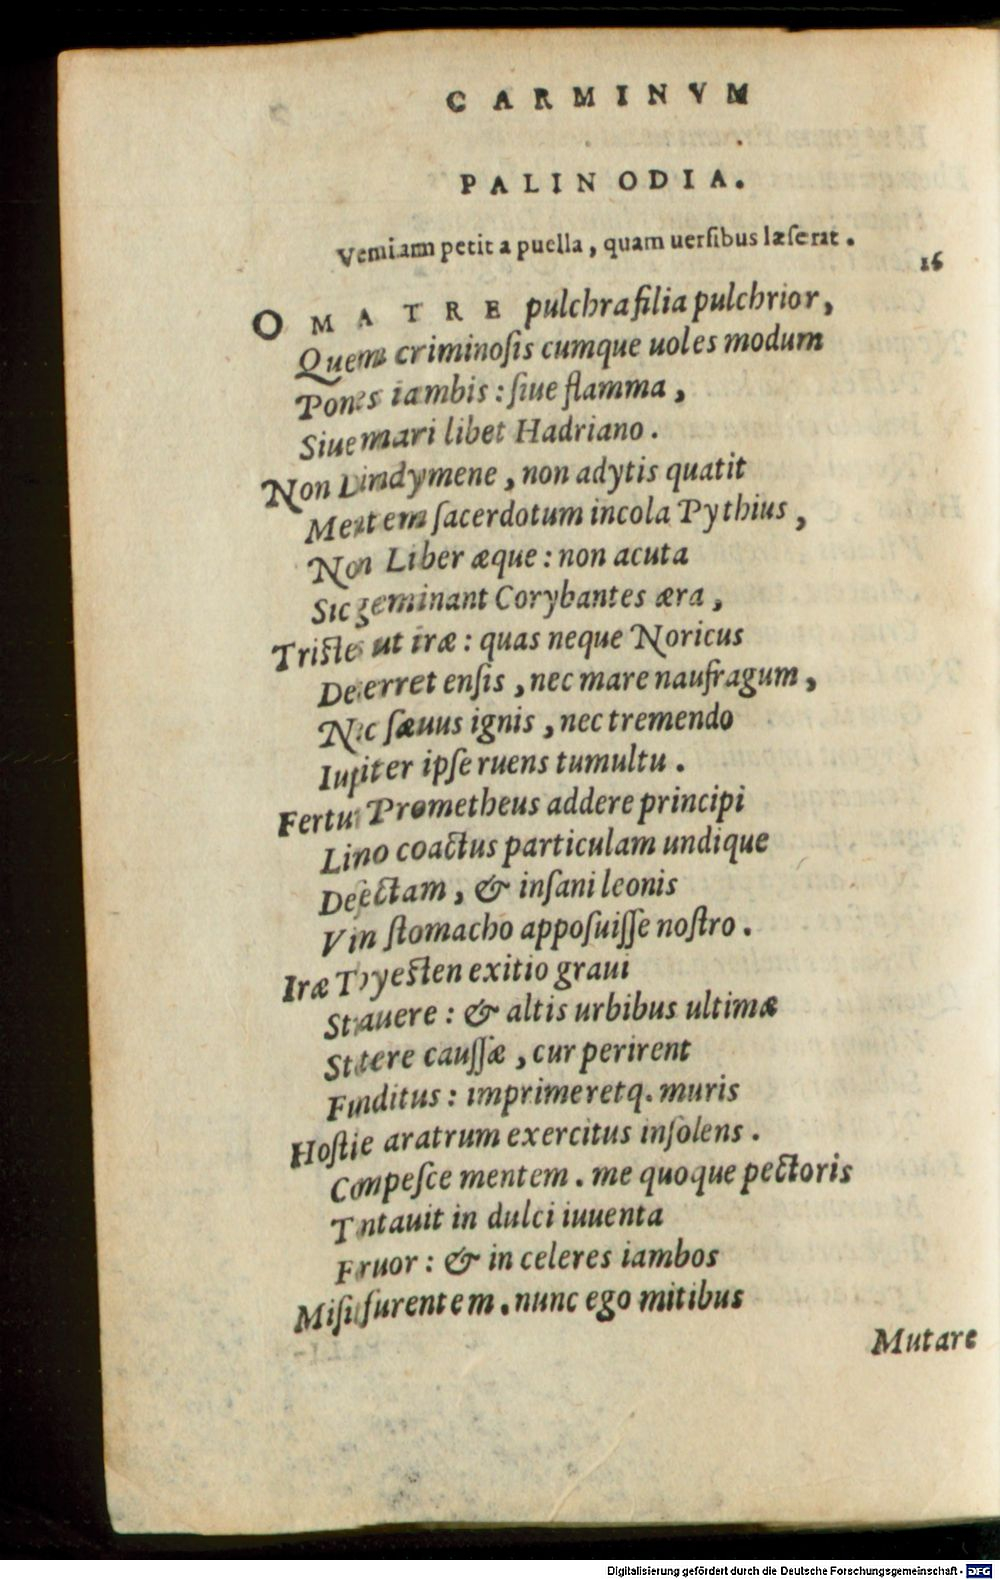 CARMINVM
PALINODIA.
Veniam petit a puella, quam uersibus læserat.
16
O MATRE pulchra filia pulchrior,
Quem criminosis cumque uoles modum
Pones iambis: siue flamma,
Siue mari libet Hadriano.
Non Dindymene, non adytis quatit
Mentem sacerdotum incola Pythius,
Non Liber æque: non acuta
Sic geminant Corybantes æra,
Tristes ut iræ: quas neque Noricus
Deterret ensis, nec mare naufragum,
Nec sæuus ignis, nec tremendo
Iupiter ipse ruens tumultu.
Fertur Prometheus addere principi
Limo coactus particulam undique
Desectam, & insani leonis
Vim stomacho apposuisse nostro.
Iræ Thyesten exitio graui
Strauere: & altis urbibus ultimæ
Stetere caussæ, cur perirent
Funditus: imprimeretq. muris
Hostile aratrum exercitus insolens.
Compesce mentem. me quoque pectoris
Tentauit in dulci iuuenta
Feruor: & in celeres iambos
Misit furentem. nunc ego mitibus
Mutare
Digitalisierung gefördert durch die Deutsche Forschungsgemeinschaft - DFG